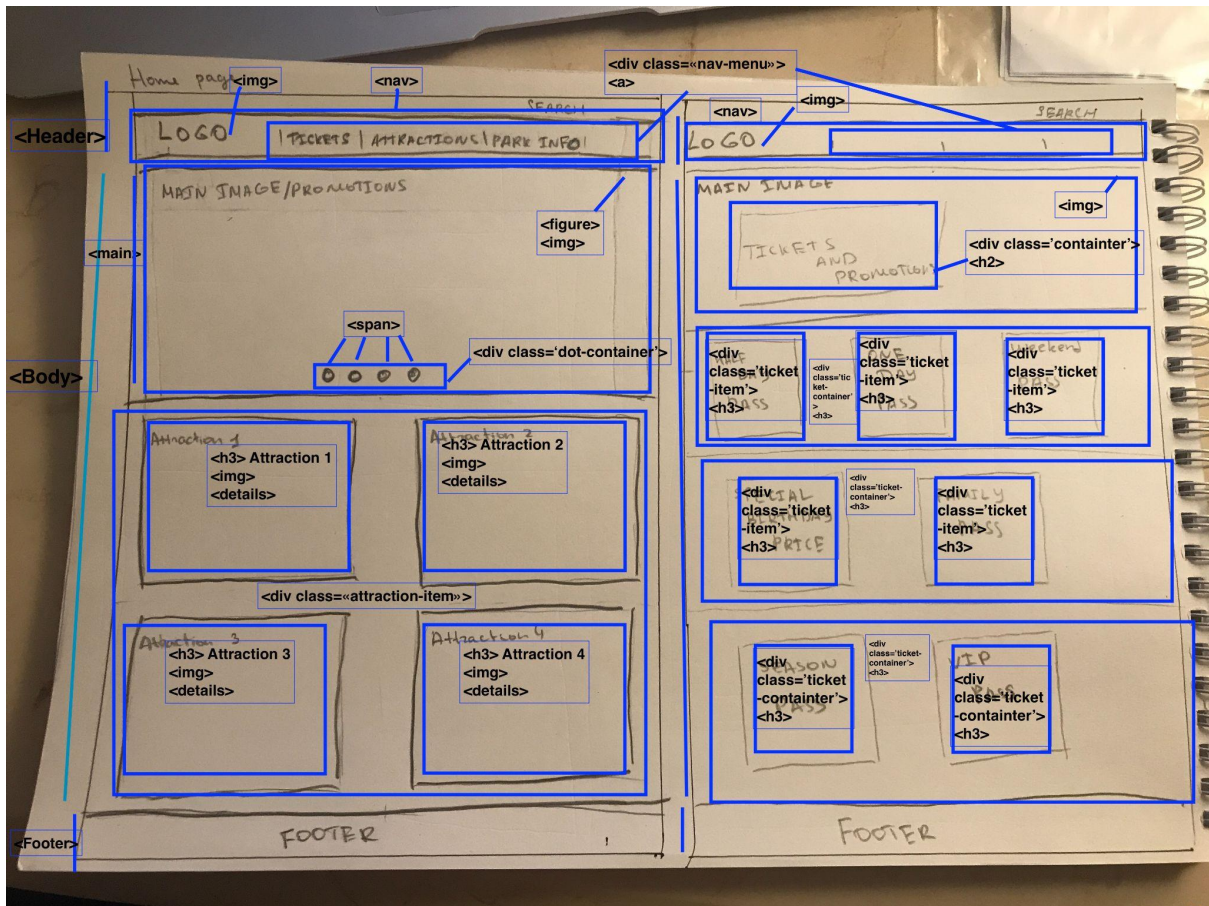 Home page
<img>
<nav>
SEARCH
<Header>
LOGO
|TICKETS | ATTRACTIONS | PARK INFO|
<div class=«nav-menu»>
<a>
MAIN IMAGE/PROMOTIONS
<figure>
<img>
<main>
<span>
<div class=‘dot-container’>
<Body>
Attraction 1
<h3> Attraction 1
<img>
<details>
Attraction 2
<h3> Attraction 2
<img>
<details>
<div class=«attraction-item»>
Attraction 3
<h3> Attraction 3
<img>
<details>
Attraction 4
<h3> Attraction 4
<img>
<details>
<Footer>
FOOTER
<nav>
<img>
SEARCH
LOGO
MAIN IMAGE
<img>
TICKETS
AND
PROMOTIONS
<div class=’containter’>
<h2>
HALF
DAY
PASS
<div
class=’ticket
-item’>
<h3>
<div
class=’tic
ket-
container’
>
<h3>
ONE
DAY
PASS
<div
class=’ticket
-item’>
<h3>
Weekend
PASS
<div
class=’ticket
-item’>
<h3>
SPECIAL
BIRTHDAY
PRICE
<div
class=’ticket
-item’>
<h3>
<div
class=’ticket-
container’>
<h3>
FAMILY
PASS
<div
class=’ticket
-item’>
<h3>
SEASON
PASS
<div
class=’ticket
-containter’>
<h3>
<div
class=’ticket-
container’>
<h3>
VIP
PASS
<div
class=’ticket
-containter’>
<h3>
FOOTER